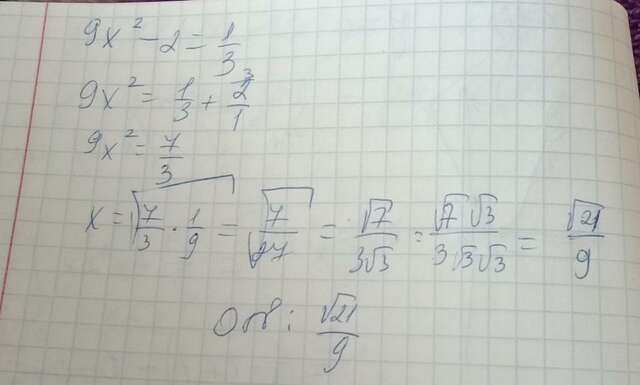 9x² - 2 = 1/3
9x² = 1/3 + 2/1 ³
9x² = 7/3
x = √(7/3 · 1/9) = √(7/27) = √7/(3√3) = √7 √3/(3√3√3) = √21/9
Отв: √21/9